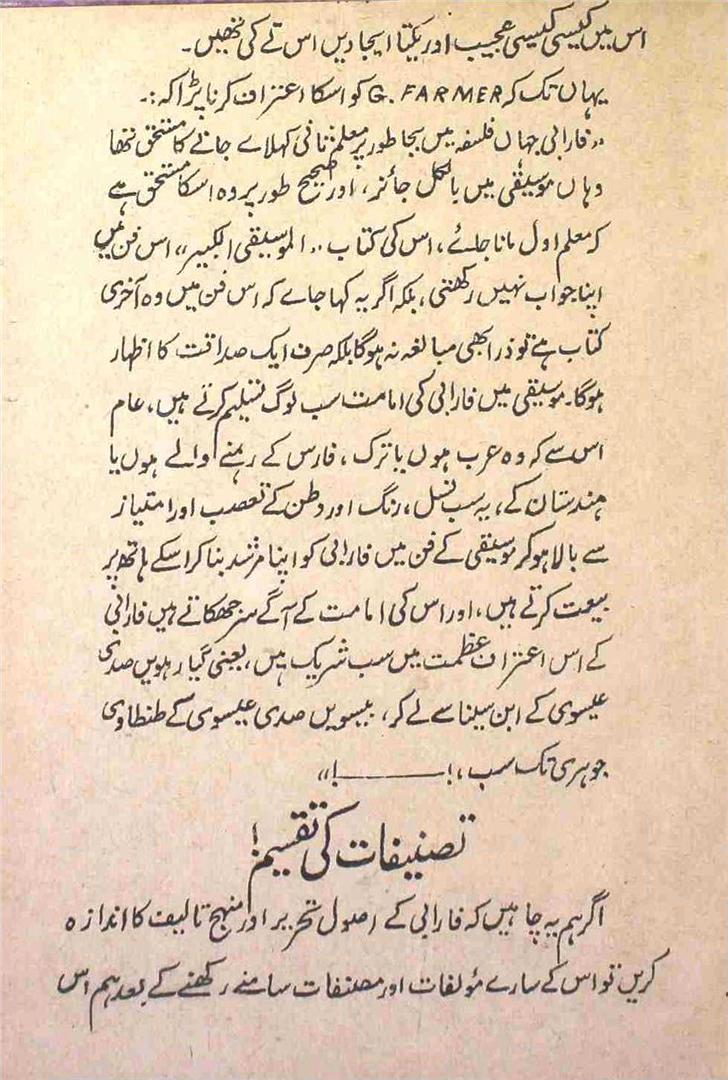 اس میں کیسی کیسی عجیب اور یکتا ایجادیں اس نے کی تھیں۔
یہاں تک کہ G. FARMER کو اسکا اعتراف کرنا پڑا کہ :۔
”فارابی جہاں فلسفہ میں بجا طور پر معلم ثانی کہلاے جانے کا مستحق تھا
وہاں موسیقی میں بالکل جائز، اور صحیح طور پر وہ اسکا مستحق ہے
کہ معلم اول مانا جائے، اس کی کتاب ”الموسیقی الکبیر“ اس فن میں
اپنا جواب نہیں رکھتی، بلکہ اگر یہ کہا جاے کہ اس فن میں وہ آخری
کتاب ہے تو ذرا بھی مبالغہ نہ ہوگا بلکہ صرف ایک صداقت کا اظہار
ہوگا۔ موسیقی میں فارابی کی امامت سب لوگ تسلیم کرتے ہیں، عام
اس سے کہ وہ عرب ہوں یا ترک، فارس کے رہنے والے ہوں یا
ہندستان کے، یہ سب نسل، رنگ اور وطن کے تعصب اور امتیاز
سے بالا ہو کر موسیقی کے فن میں فارابی کو اپنا مرشد بنا کر اسکے ہاتھ پر
بیعت کرتے ہیں، اور اس کی امامت کے آگے سر جھکاتے ہیں فارابی
کے اس اعتراف عظمت میں سب شریک ہیں، یعنی گیارہویں صدی
عیسوی کے ابن سینا سے لے کر، بیسویں صدی عیسوی کے طنطاوی
جوہری تک سب، !ـــــــــ!“
تصنیفات کی تقسیم!
اگر ہم یہ چاہیں کہ فارابی کے اصول تحریر اور منہج تالیف کا اندازہ
کریں تو اس کے سارے مؤلفات اور مصنفات سامنے رکھنے کے بعد ہم اس